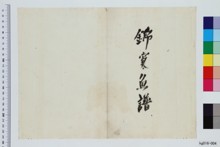 錦窠魚譜